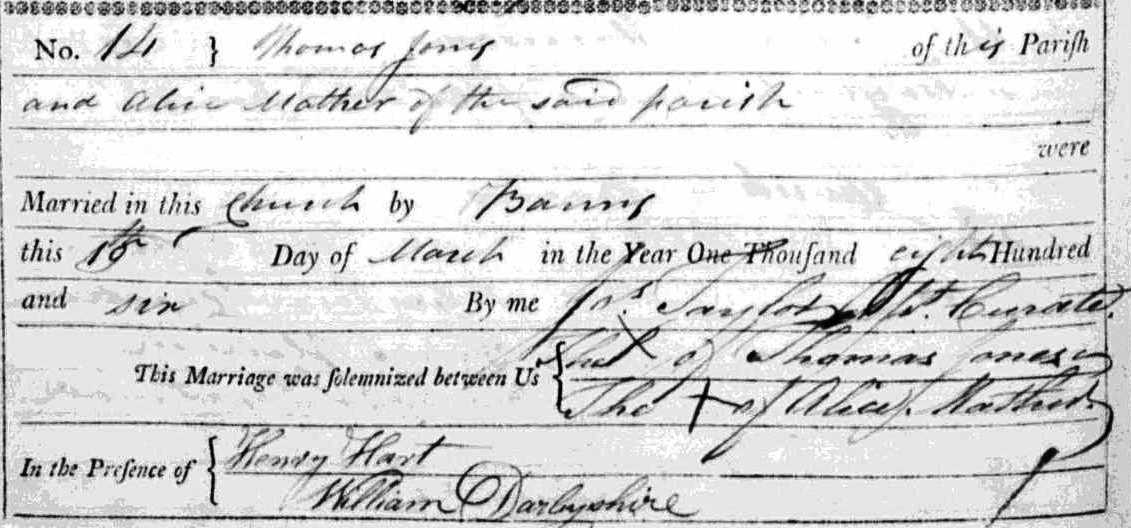 No. 14 } Thomas Jones of this Pariſh
and Alice Mather of the said parish
were
Married in this Church by Banns
this Day of March in the Year One Thouſand eight Hundred
and six By me Jos. Taylor Curate.
This Marriage was ſolemnized between Us { The X of Thomas Jones
The + of Alice Mather
In the Preſence of { Henry Hart
William Darbyshire